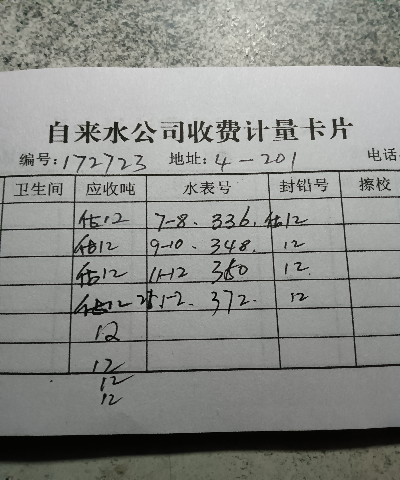 自来水公司收费计量卡片
编号:172723 地址:4-201 电话
卫生间 应收吨 水表号 封铅号 擦校
估12 7-8. 336. 估12
估12 9-10. 348. 12
估12 11-12 360 12.
估12 1-2. 372. 12
12
12
12
12